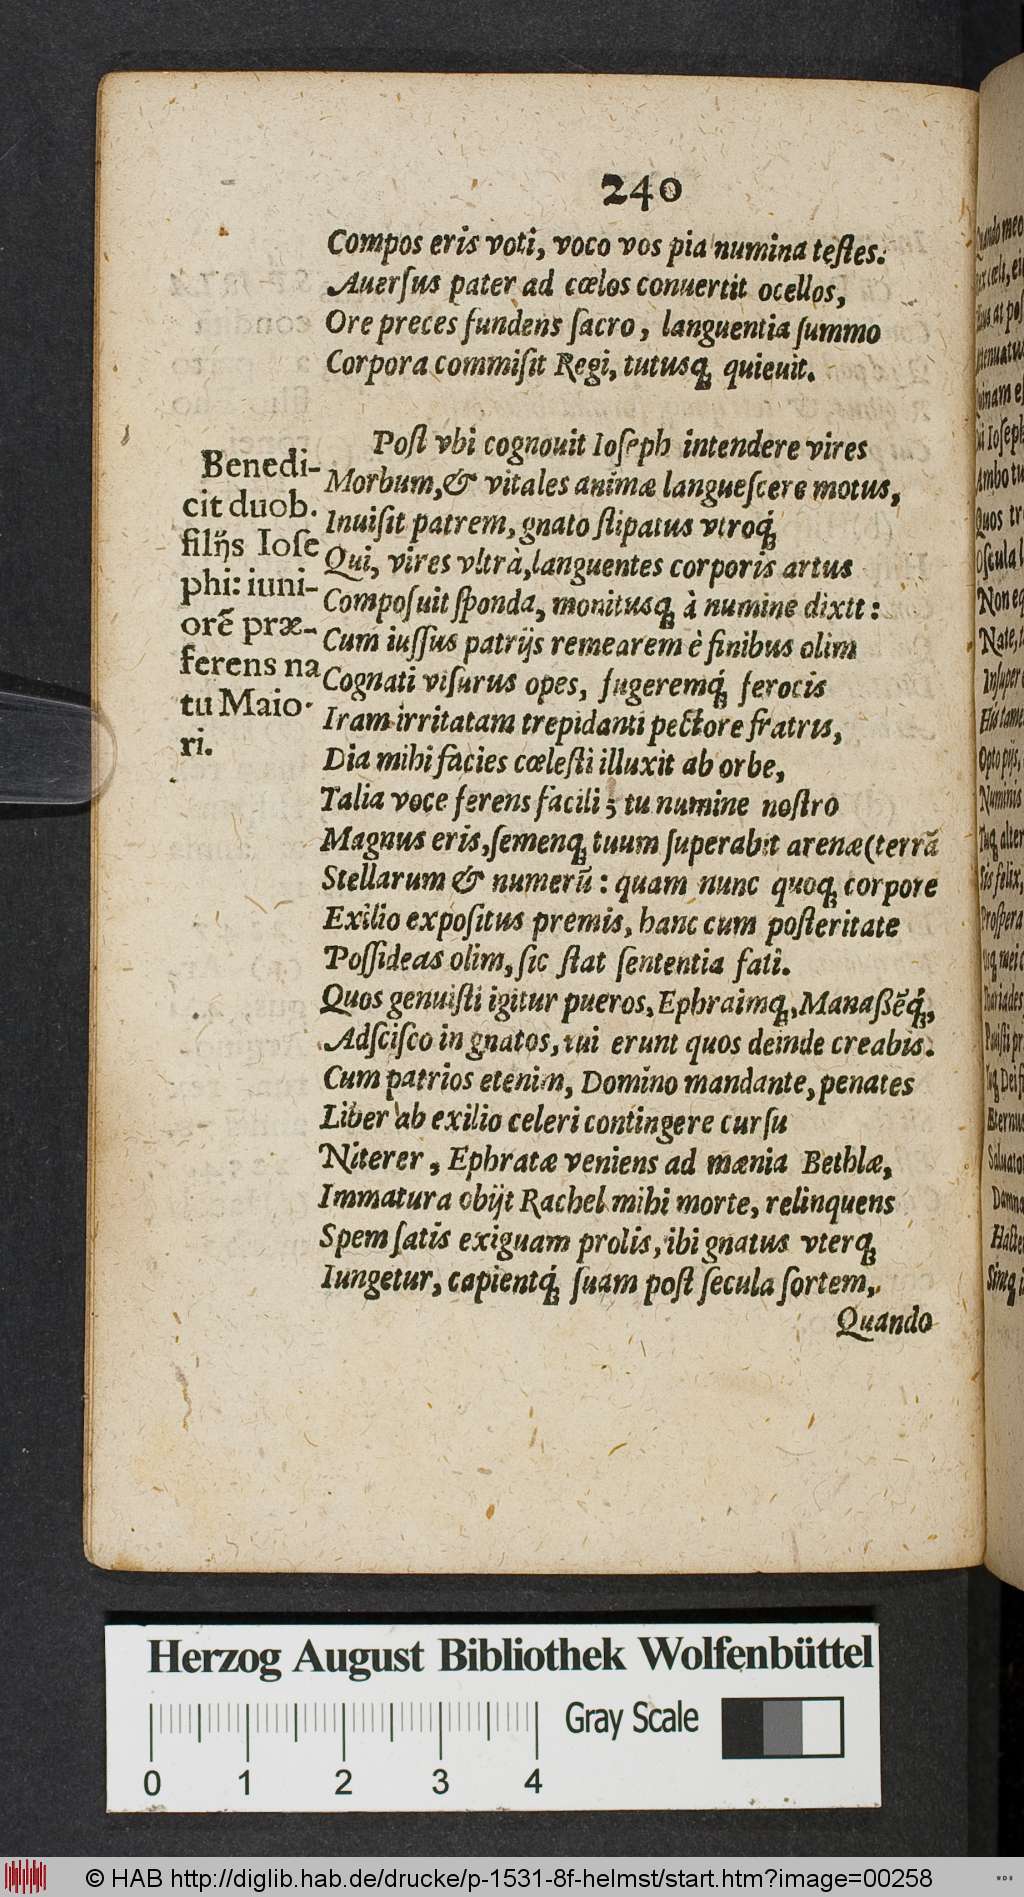 240
Compos eris voti, voco vos pia numina testes.
Auersus pater ad cœlos conuertit ocellos,
Ore preces fundens sacro, languentia summo
Corpora commisit Regi, tutusq; quieuit.
Post vbi cognouit Ioseph intendere vires
Morbum, & vitales animæ languescere motus,
Inuisit patrem, gnato stipatus vtroq́;
Qui, vires vltrà, languentes corporis artus
Composuit sponda, monitusq; à numine dixtt:
Cum iussus patrijs remearem è finibus olim
Cognati visurus opes, fugeremq́; ferocis
Iram irritatam trepidanti pectore fratris,
Dia mihi facies cœlesti illuxit ab orbe,
Talia voce ferens facili; tu numine nostro
Magnus eris, semenq; tuum superabit arenæ (terrā
Stellarum & numerū: quam nunc quoq; corpore
Exilio expositus premis, hanc cum posteritate
Possideas olim, sic stat sententia fati.
Quos genuisti igitur pueros, Ephraimq;, Manaßēq́;,
Adscisco in gnatos, tui erunt quos deinde creabis.
Cum patrios etenim, Domino mandante, penates
Liber ab exilio celeri contingere cursu
Niterer, Ephratæ veniens ad mænia Bethlæ,
Immatura obijt Rachel mihi morte, relinquens
Spem satis exiguam prolis, ibi gnatus vterq;
Iungetur, capientq́; suam post secula sortem,
Quando
Benedi-
cit duob.
filijs Iose
phi: iuni-
orē præ-
ferens na
tu Maio-
ri.
Herzog August Bibliothek Wolfenbüttel
Gray Scale
0 1 2 3 4
© HAB http://diglib.hab.de/drucke/p-1531-8f-helmst/start.htm?image=00258